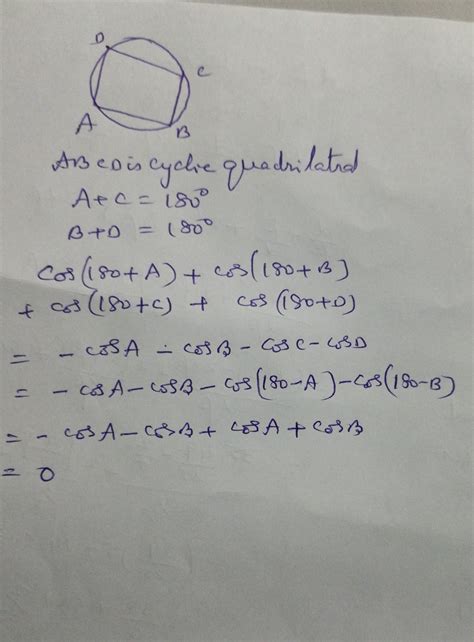 D
C
A
B
ABCD is cyclic quadrilatral
A+C = 180°
B+D = 180°
Cos(180+A) + cos(180+B)
+ cos(180+C) + cos(180+D)
= - cosA - cosB - cosC - cosD
= - cosA - cosB - cos(180-A) - cos(180-B)
= - cosA - cosB + cosA + cosB
= 0